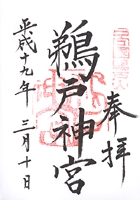 奉拝
鵜戸神宮
平成十九年三月十日